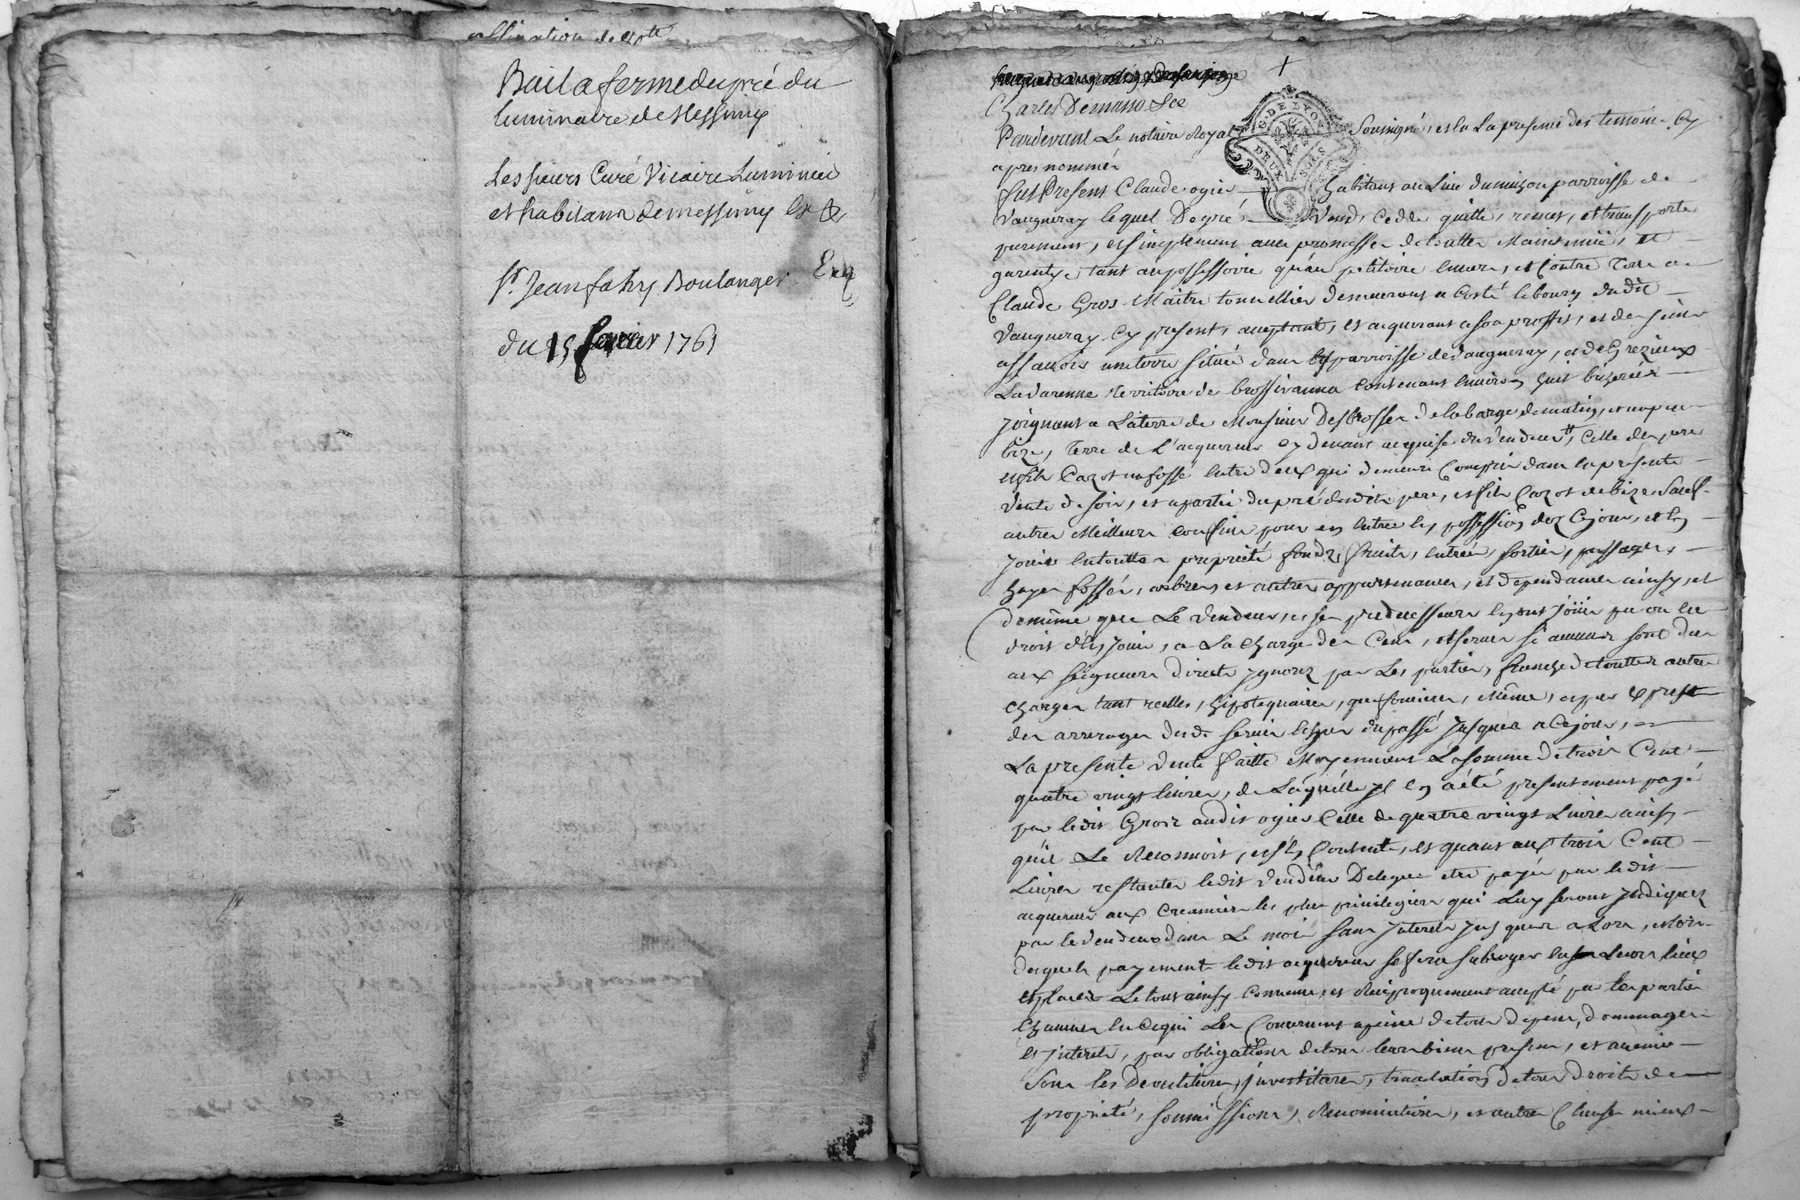 Bail a ferme du pré du
luminaire de Messimy
Les sieurs Curé Vicaire Luminier
et habitans de messimy
Sr. Jean fahy Boulanger
du 15 1761
Charles
Pardevant Le notaire Royal Soussigné, et en La presence des temoins Cy
apres nommés
fut Present Claude ogier habitant au Lieu du parroisse de
Vaugneray lequel De gré, Vend, Cedde quitte, remet, et transporte
purement, et simplement avec promesse de toutte Maintenüe, et
garentye tant au possessoire qu'au petitoire Envers, et Contre Tous a
Claude Gros Maitre tonnellier demeurant a Costé le bourg dudit
Vaugneray Cy present, acceptant, et acquerant a son proffit, et des siens
assavoir une terre située dans la parroisse de Vaugneray, et de Grezieux
La Varenne territoire de contenant Environ huit
joignant a La terre de Monsieur Desbrosses de la barge de matin,
bize, Terre de L'acquereur Cy devant acquise du Vendeur, Celle des pere
et fils Cazot un fossé Entre deux qui demeure Compris dans la présente
Vente de soir, et a partie du pré desdits pere, et fils Cazot de bize Sauf
autres Meilleurs Confins pour en Entrer en possession dez Cejour, et En
Jouir En toutte propriété fonds, fruits, Entrées, sorties, passages,
hayes fossés, arbres, et autres appartenances, et dépendances ainsy, et
de même que Le Vendeur, et ses predecesseurs En ont Jöüi ou eu
droit d'En Jouir, a La Charge des Cens, et servis si aucuns sont dus
aux seigneurs directs ignorez par Les parties, franche de touttes autres
Charges tant réelles, hipotequaires, que foncieres, Même,
des arrerages dud. servis du passé Jusques a Cejour,
La presente Vente faitte Moyennant La somme de trois Cent
quatre vingt Livres, de Laquélle Il En a été presentement payé
par ledit Gros audit ogier Celle de quatre vingt Livres ainsy
qu'il Le Reconnoit, et s'En Contente, et quant aux trois Cent
Livres restantes ledit Vendeur Delegue etre payés par ledit
acquereur aux Creanciers les plus privilegiés qui Luy seront Indiquez
par le Vendeur dans Le mois sans Interets Jusques a Lors,
desquels payements ledit acquereur se fera subroger En Leurs lieux
et places Le tout ainsy Convenu, et Réciproquement accepté par Les parties
Chacunes En Ce qui Les Concernent a peine de tous dépens, dommages
et Interets, par obligations de tous leurs biens presens, et avenir
Sous les Devestitures, investitures, translations de tous droits de
propriété, soumissions, Renonciations, et autres Clauses mieux